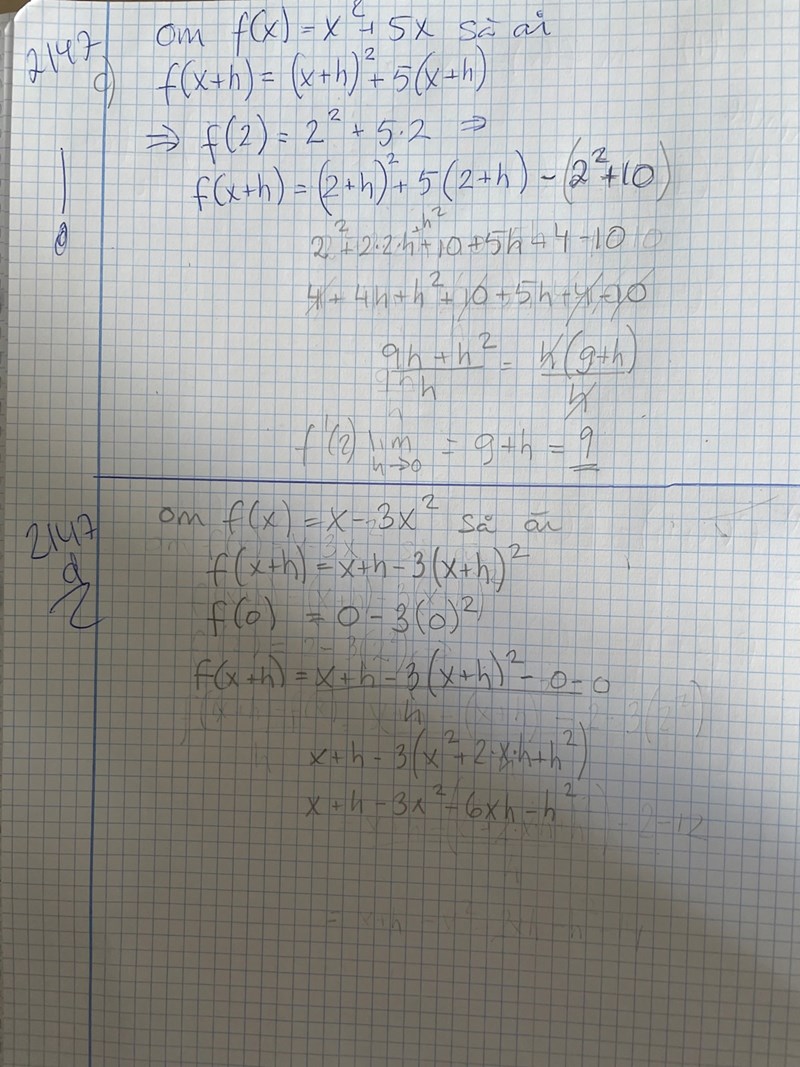 2147
c)
Om f(x) = x² + 5x så är
f(x+h) = (x+h)² + 5(x+h)
⇒ f(2) = 2² + 5·2 ⇒
f(x+h) = (2+h)² + 5(2+h) - (2²+10)
2² + 2·2·h + h² + 10 + 5h + 4 - 10
4 + 4h + h² + 10 + 5h + 4 - 10
(9h + h²)/h = h(9+h)/h
f'(2) lim h→0 = 9+h = 9
2147
d
om f(x) = x - 3x² så är
f(x+h) = x+h - 3(x+h)²
f(0) = 0 - 3(0)²
f(x+h) = x+h - 3(x+h)² - 0 = 0
h
x+h - 3(x² + 2·x·h + h²)
x + h - 3x² - 6xh - h²